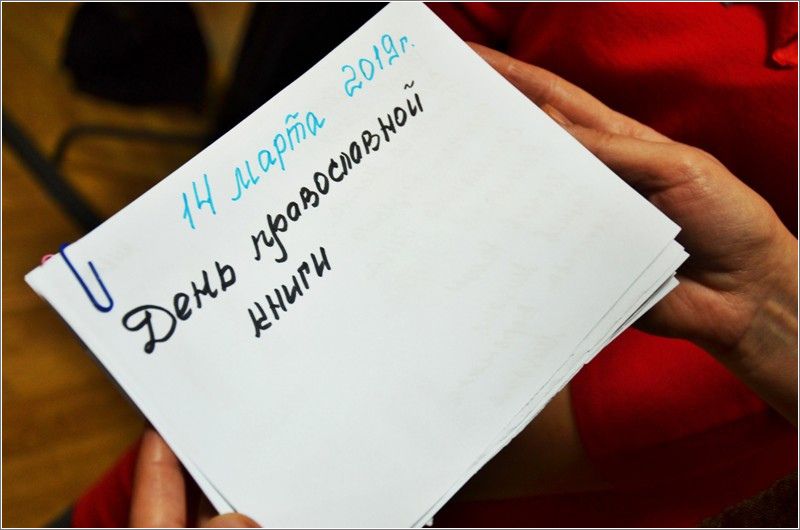 14 марта 2019г.
День православной
книги